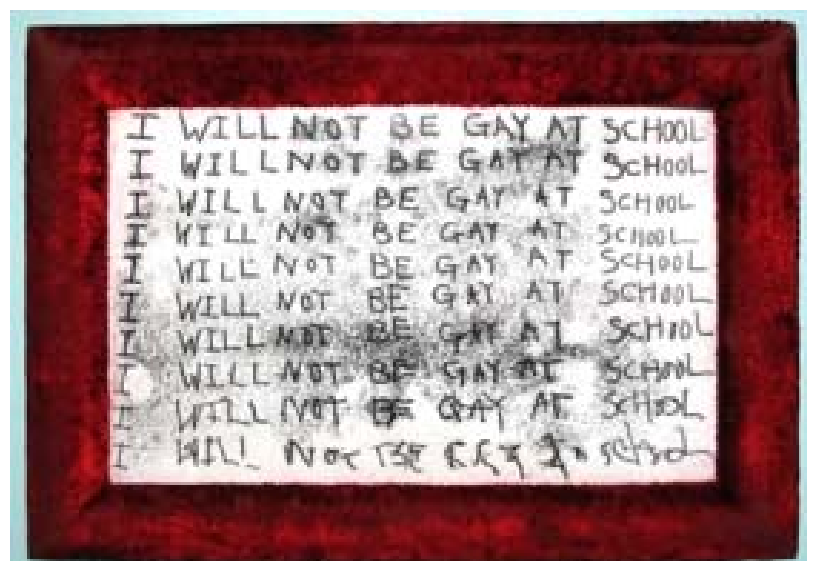 I WILL NOT BE GAY AT SCHOOL
I WILL NOT BE GAY AT SCHOOL
I WILL NOT BE GAY AT SCHOOL
I WILL NOT BE GAY AT SCHOOL
I WILL NOT BE GAY AT SCHOOL
I WILL NOT BE GAY AT SCHOOL
I WILL NOT BE GAY AT SCHOOL
I WILL NOT BE GAY AT SCHOOL
I WILL NOT BE GAY AT SCHOOL
I WILL NOT BE school